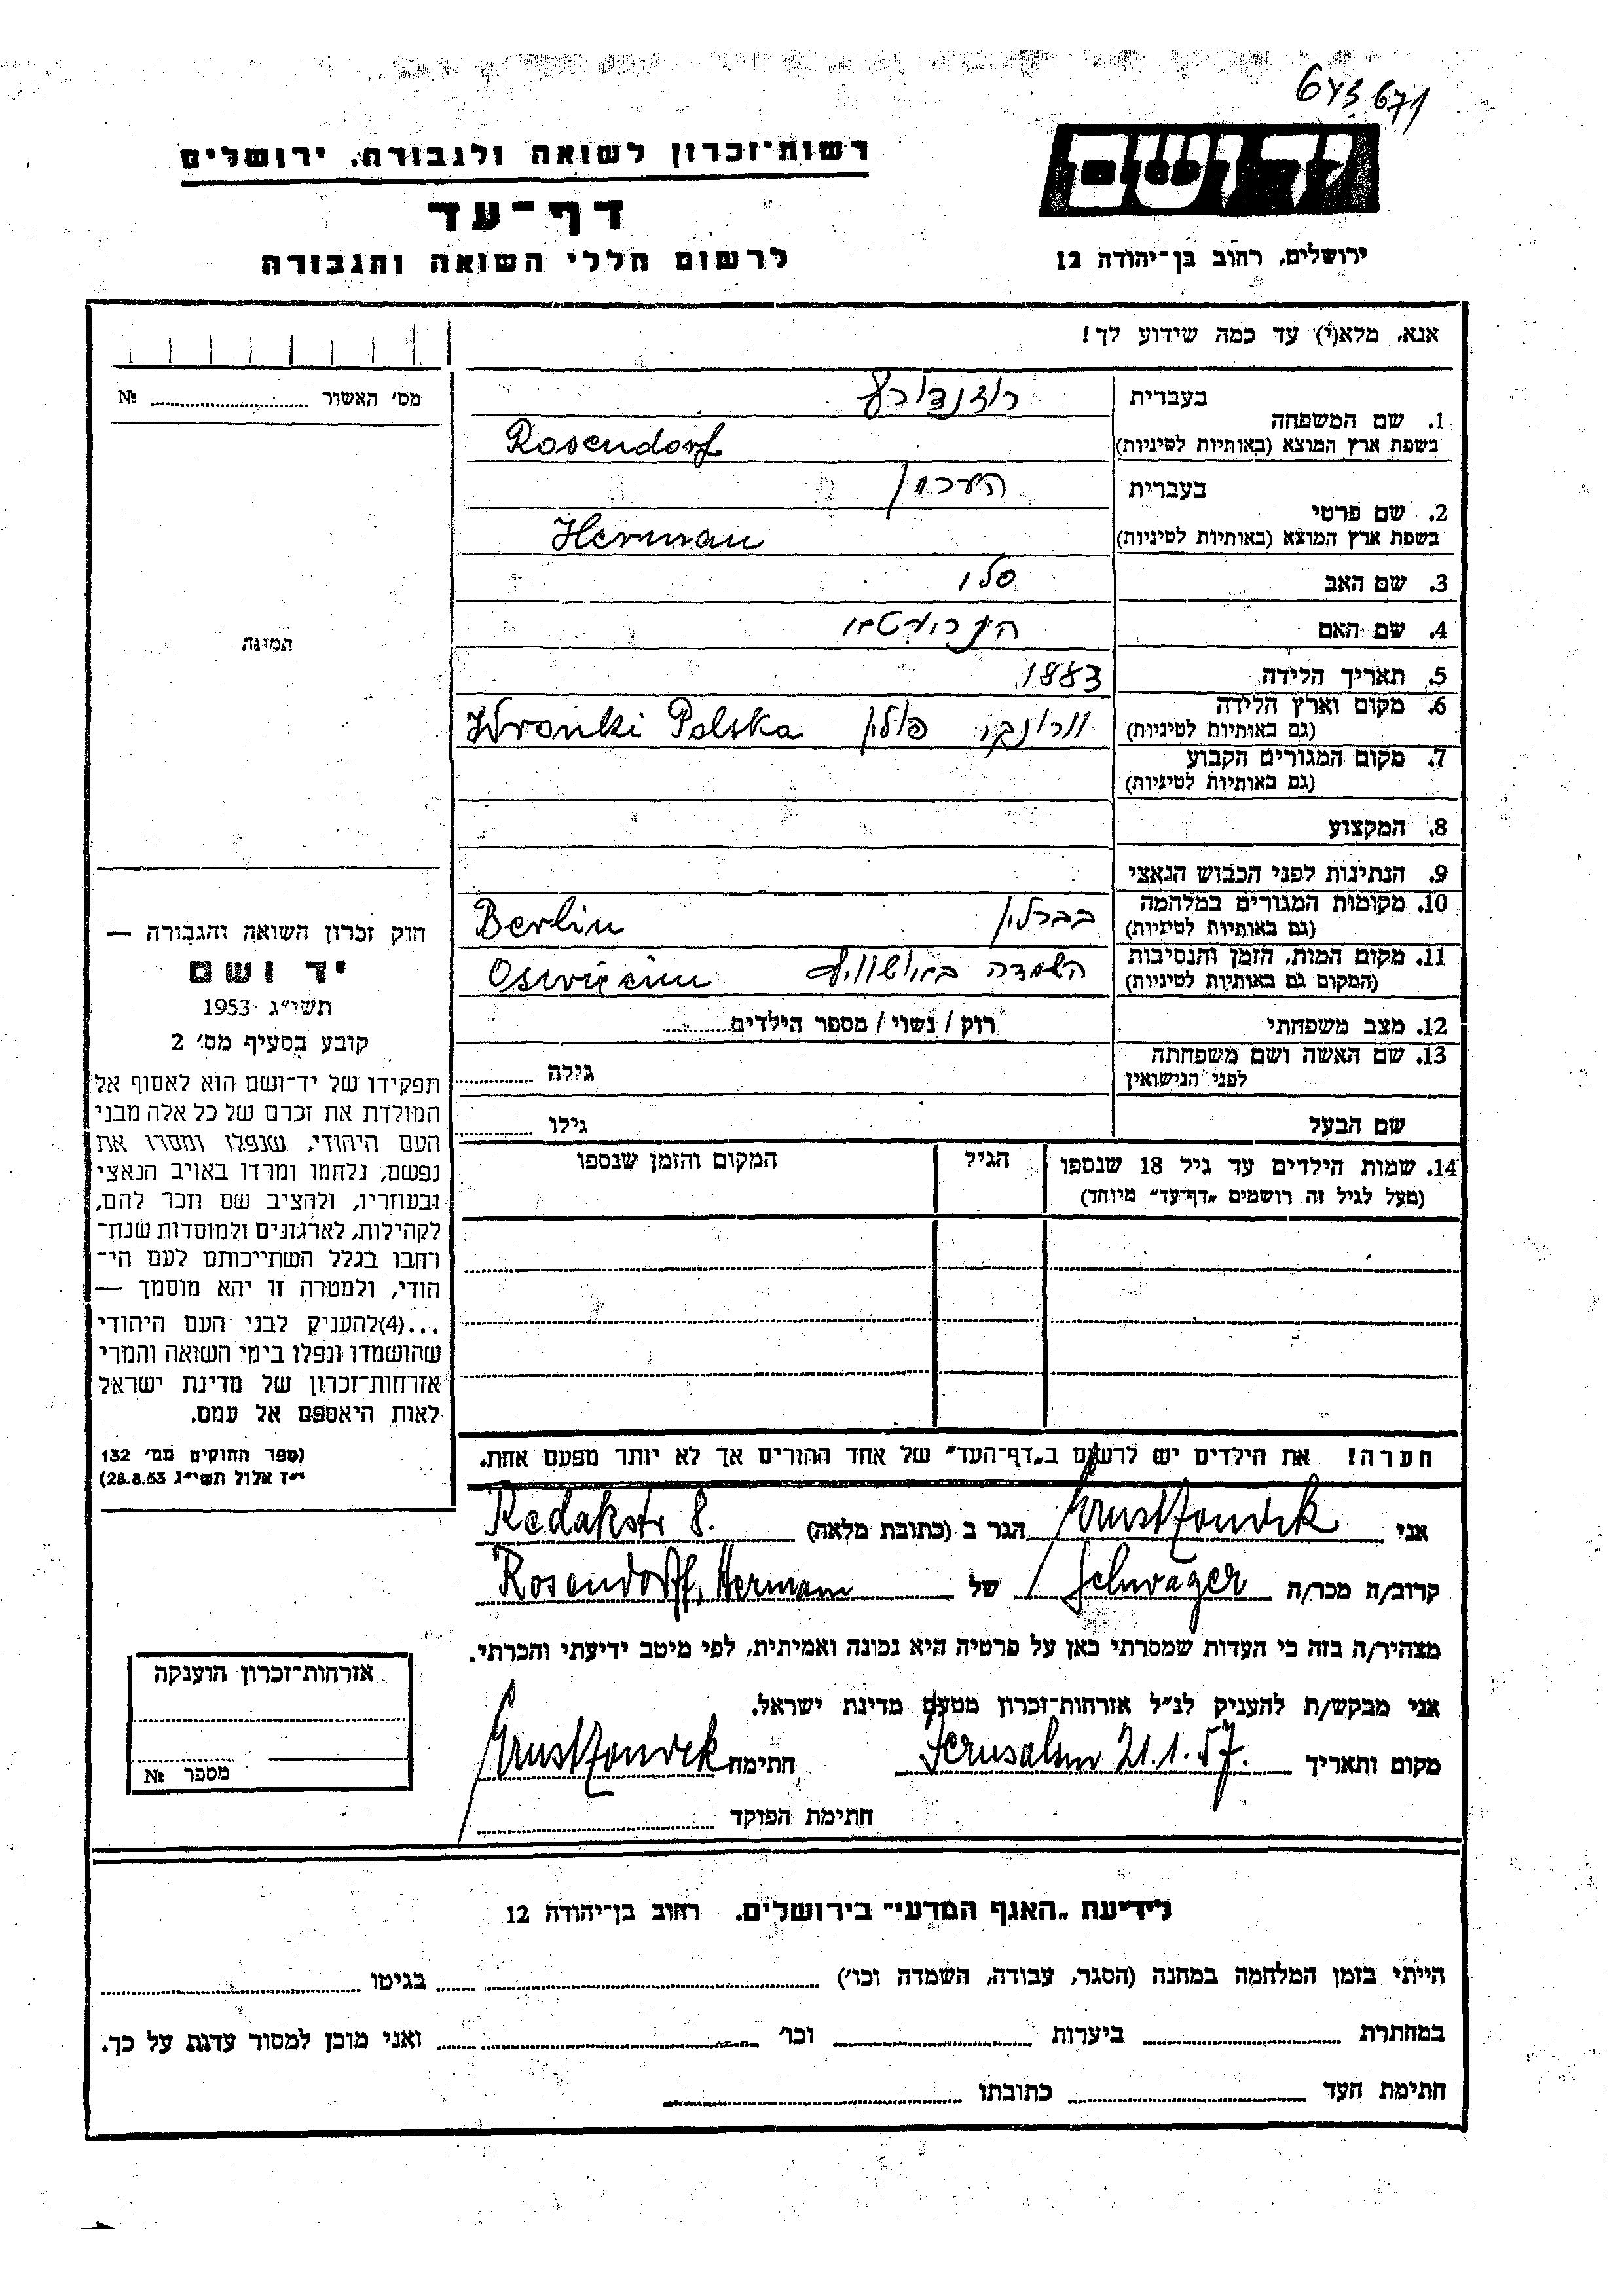 643671
רשות־זכרון לשואה ולגבורה, ירושלים
יד ושם
דף־עד
ירושלים, רחוב בן־יהודה 12
לרשום חללי השואה והגבורה
אנא, מלא(י) עד כמה שידוע לך!
מס' האשור № 
1. שם המשפחה
בעברית רוזנדורף
בשפת ארץ המוצא (באותיות לטיניות) Rosendorf
2. שם פרטי
בעברית הערמן
בשפת ארץ המוצא (באותיות לטיניות) Herman
3. שם האב סלו
4. שם האם
5. תאריך הלידה 1883
6. מקום וארץ הלידה
(גם באותיות לטיניות) וורונקי פולין Wronki Polska
7. מקום המגורים הקבוע
(גם באותיות לטיניות)
8. המקצוע
9. הנתינות לפני הכבוש הנאצי
10. מקומות המגורים במלחמה
(גם באותיות לטיניות) בברלין Berlin
11. מקום המות, הזמן והנסיבות
(המקום גם באותיות לטיניות) השמדה באושוויץ Oswięcim
12. מצב משפחתי רוק / נשוי / מספר הילדים
13. שם האשה ושם משפחתה
לפני הנישואין גילה
שם הבעל גילו
14. שמות הילדים עד גיל 18 שנספו הגיל המקום והזמן שנספו
(מעל לגיל זה רושמים "דף־עד" מיוחד)
תמונה
חוק זכרון השואה והגבורה —
יד ושם
תשי"ג 1953
קובע בסעיף מס' 2
תפקידו של יד־ושם הוא לאסוף אל
המולדת את זכרם של כל אלה מבני
העם היהודי, שנפלו ומסרו את
נפשם, נלחמו ומרדו באויב הנאצי
ובעוזריו, ולהציב שם וזכר להם,
לקהילות, לארגונים ולמוסדות שנח־
רבו בגלל השתייכותם לעם הי־
הודי, ולמטרה זו יהא מוסמך —
...(4)להעניק לבני העם היהודי
שהושמדו ונפלו בימי השואה והמרי
אזרחות־זכרון של מדינת ישראל
לאות היאספם אל עמם.
(ספר החוקים מס' 132
י"ז אלול תשי"ג 28.8.53)
הערה! את הילדים יש לרשום ב"דף־העד" של אחד ההורים אך לא יותר מפעם אחת.
אני הגר ב (כתובת מלאה) Redakstr 8.
קרוב/ה מכר/ה Schwager של Rosendorff, Hermann
מצהיר/ה בזה כי העדות שמסרתי כאן על פרטיה היא נכונה ואמיתית, לפי מיטב ידיעתי והכרתי.
אני מבקש/ת להעניק לנ"ל אזרחות־זכרון מטעם מדינת ישראל.
מקום ותאריך Jerusalem 21.1.57. חתימה
חתימת הפוקד
אזרחות־זכרון הוענקה
מספר №
לידיעת "האגף המדעי" בירושלים, רחוב בן־יהודה 12
הייתי בזמן המלחמה במחנה (הסגר, עבודה, השמדה וכו') בגיטו
במחתרת ביערות וכו' ואני מוכן למסור עדות על כך.
חתימת העד כתובתו